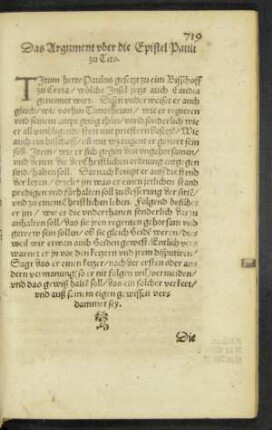 719
Das Argument vber die Epistel Pauli
zu Tito.
TItum hette Paulus gesetzt zu eim Bisschoff
zu Creta / wölche Insel jetzt auch Candia
genennet wirt. Disen vnderweiset er auch
gleich / wie vorhin Timotheum / wie er regieren
vnd seinem ampt gnug thun / vnd sonderlich wie
er all vmbligende stett mit priestern
auch ein bisschoff / oß mit
sein soll. Item / wie er sich gegen den vngehorsamen /
vnd denen die der Christlichen ordnung entgegen
sind / halten soll. Darnach kompt er auff die stend
der leren / zeigt jm was er einem jetlichen stand
predigen vnd fürhalten soll zu besserung der sitten /
vnd zu einem Christlichen leben. Folgend befilhet
er jm / wie er die vnderthanen sonderlich darzu
anhalten soll / das sie jren regenten gehorsam vnd
getrew sein sollen / ob sie gleich Heiden weren / die-
weil wir etwan auch Heiden gewest. Entlich ver-
warnet er jn vor den ketzern vnd jrem disputiren.
Sagt das er einen ketzer / nach der ersten oder an-
dern vermanung / so er nit folgen wil / vermeiden /
vnd das gewiß halten soll / das ein solcher verkert /
vnd auß seinem eigen gewissen ver-
dammet sey.
Die